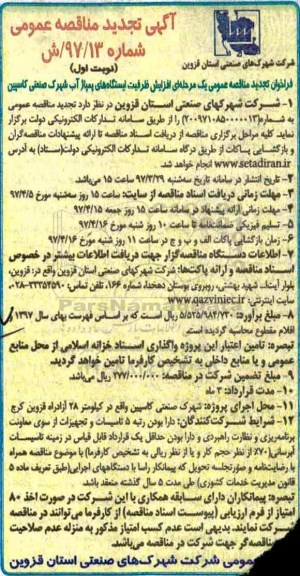 آگهی تجدید مناقصه عمومی
شماره ۹۷/۱۳/ش
(نوبت اول)
شرکت شهرک‌های صنعتی استان قزوین
فراخوان تجدید مناقصه عمومی یک مرحله‌ای افزایش ظرفیت ایستگاه‌های پمپاژ آب شهرک صنعتی کاسپین
۱- شرکت شهرکهای صنعتی استان قزوین در نظر دارد تجدید مناقصه عمومی
به شماره(۲۰۰۹۷۱۰۸۵۰۰۰۰۰۱۳) را از طریق سامانه تدارکات الکترونیکی دولت برگزار
نماید. کلیه مراحل برگزاری مناقصه از دریافت اسناد مناقصه تا ارائه پیشنهادات مناقصه‌گران
و بازگشایی پاکات از طریق درگاه سامانه تدارکات الکترونیکی دولت(ستاد) به آدرس
www.setadiran.ir انجام خواهد شد.
۲- تاریخ انتشار در سامانه تاریخ سه‌شنبه ۹۷/۳/۲۹ ساعت ۱۵ می‌باشد.
۳- مهلت زمانی دریافت اسناد مناقصه از سایت: ساعت ۱۵ روز سه‌شنبه مورخ ۹۷/۴/۵
۴- مهلت زمانی ارائه پیشنهاد در سامانه ساعت ۱۵ روز جمعه ۹۷/۴/۱۵
۵- تسلیم فیزیکی ضمانت‌نامه تا ساعت ۱۰ روز شنبه مورخ ۹۷/۴/۱۶
۶- زمان بازگشایی پاکات الف و ب و ج در ساعت ۱۱ روز شنبه مورخ ۹۷/۴/۱۶
۷- اطلاعات دستگاه مناقصه‌گزار جهت دریافت اطلاعات بیشتر در خصوص
اسناد مناقصه و ارائه پاکت‌ها: شرکت شهرکهای صنعتی استان قزوین واقع در: قزوین،
بلوار آیت‌ا... شهید بهشتی، روبروی بوستان دهخدا، شماره ۱۶۶، تلفن تماس: ۳۳۳۵۴۵۹۰-۰۲۸
سایت اینترنتی: www.qazviniec.ir
۸- مبلغ برآورد: ۵/۵۲۵/۹۸۴/۷۳۰ ریال است که بر اساس فهرست بهای سال ۱۳۹۷
اقلام مقطوع محاسبه گردیده است.
تبصره: تامین اعتبار این پروژه واگذاری اسناد خزانه اسلامی از محل منابع
عمومی و یا منابع داخلی به تشخیص کارفرما تامین خواهد گردید.
۹- مبلغ تضمین شرکت در مناقصه: ۲۷۷/۰۰۰/۰۰۰ ریال می‌باشد.
۱۰- مدت قرارداد: ۳ ماه
۱۱- محل اجرای پروژه: شهرک صنعتی کاسپین واقع در کیلومتر ۲۸ آزادراه قزوین کرج
۱۲- شرایط شرکت‌کنندگان: دارا بودن رتبه ۵ تاسیسات و تجهیزات از سوی معاونت
برنامه‌ریزی و نظارت راهبردی و دارا بودن حداقل یک قرارداد قابل قیاس در زمینه تاسیسات
آبرسانی(۷۰٪ از نظر حجم کار و یا از نظر ریالی به تشخیص کارفرما) با موضوع مناقصه همراه
با رضایت‌نامه و صورتجلسه تحویل که پیمانکار راسا با دستگاههای اجرایی(طبق تعریف ماده ۵
قانون مدیریت خدمات کشوری) طی مدت ۵ سال گذشته منعقد باشد.
تبصره: پیمانکاران دارای سابقه همکاری با این شرکت در صورت اخذ ۸۰
امتیاز از فرم ارزیابی (پیوست اسناد مناقصه) از کارفرما می‌توانند در مناقصه
شرکت نمایند. بدیهی است عدم کسب امتیاز مذکور به منزله عدم صلاحیت
مناقصه‌گر جهت شرکت در مناقصه می‌باشد.
عمومی شرکت شهرک‌های صنعتی استان قزوین